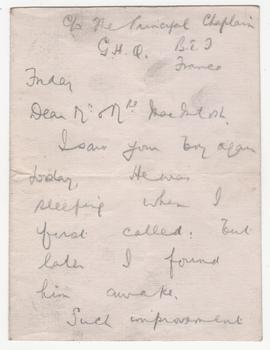 c/o The Principal Chaplain
G.H.Q. B.E.F
France
Friday
Dear Mr. & Mrs MacIntosh.
I saw your boy again
today. He was
sleeping when I
first called. but
later I found
him awake.
Such improvement